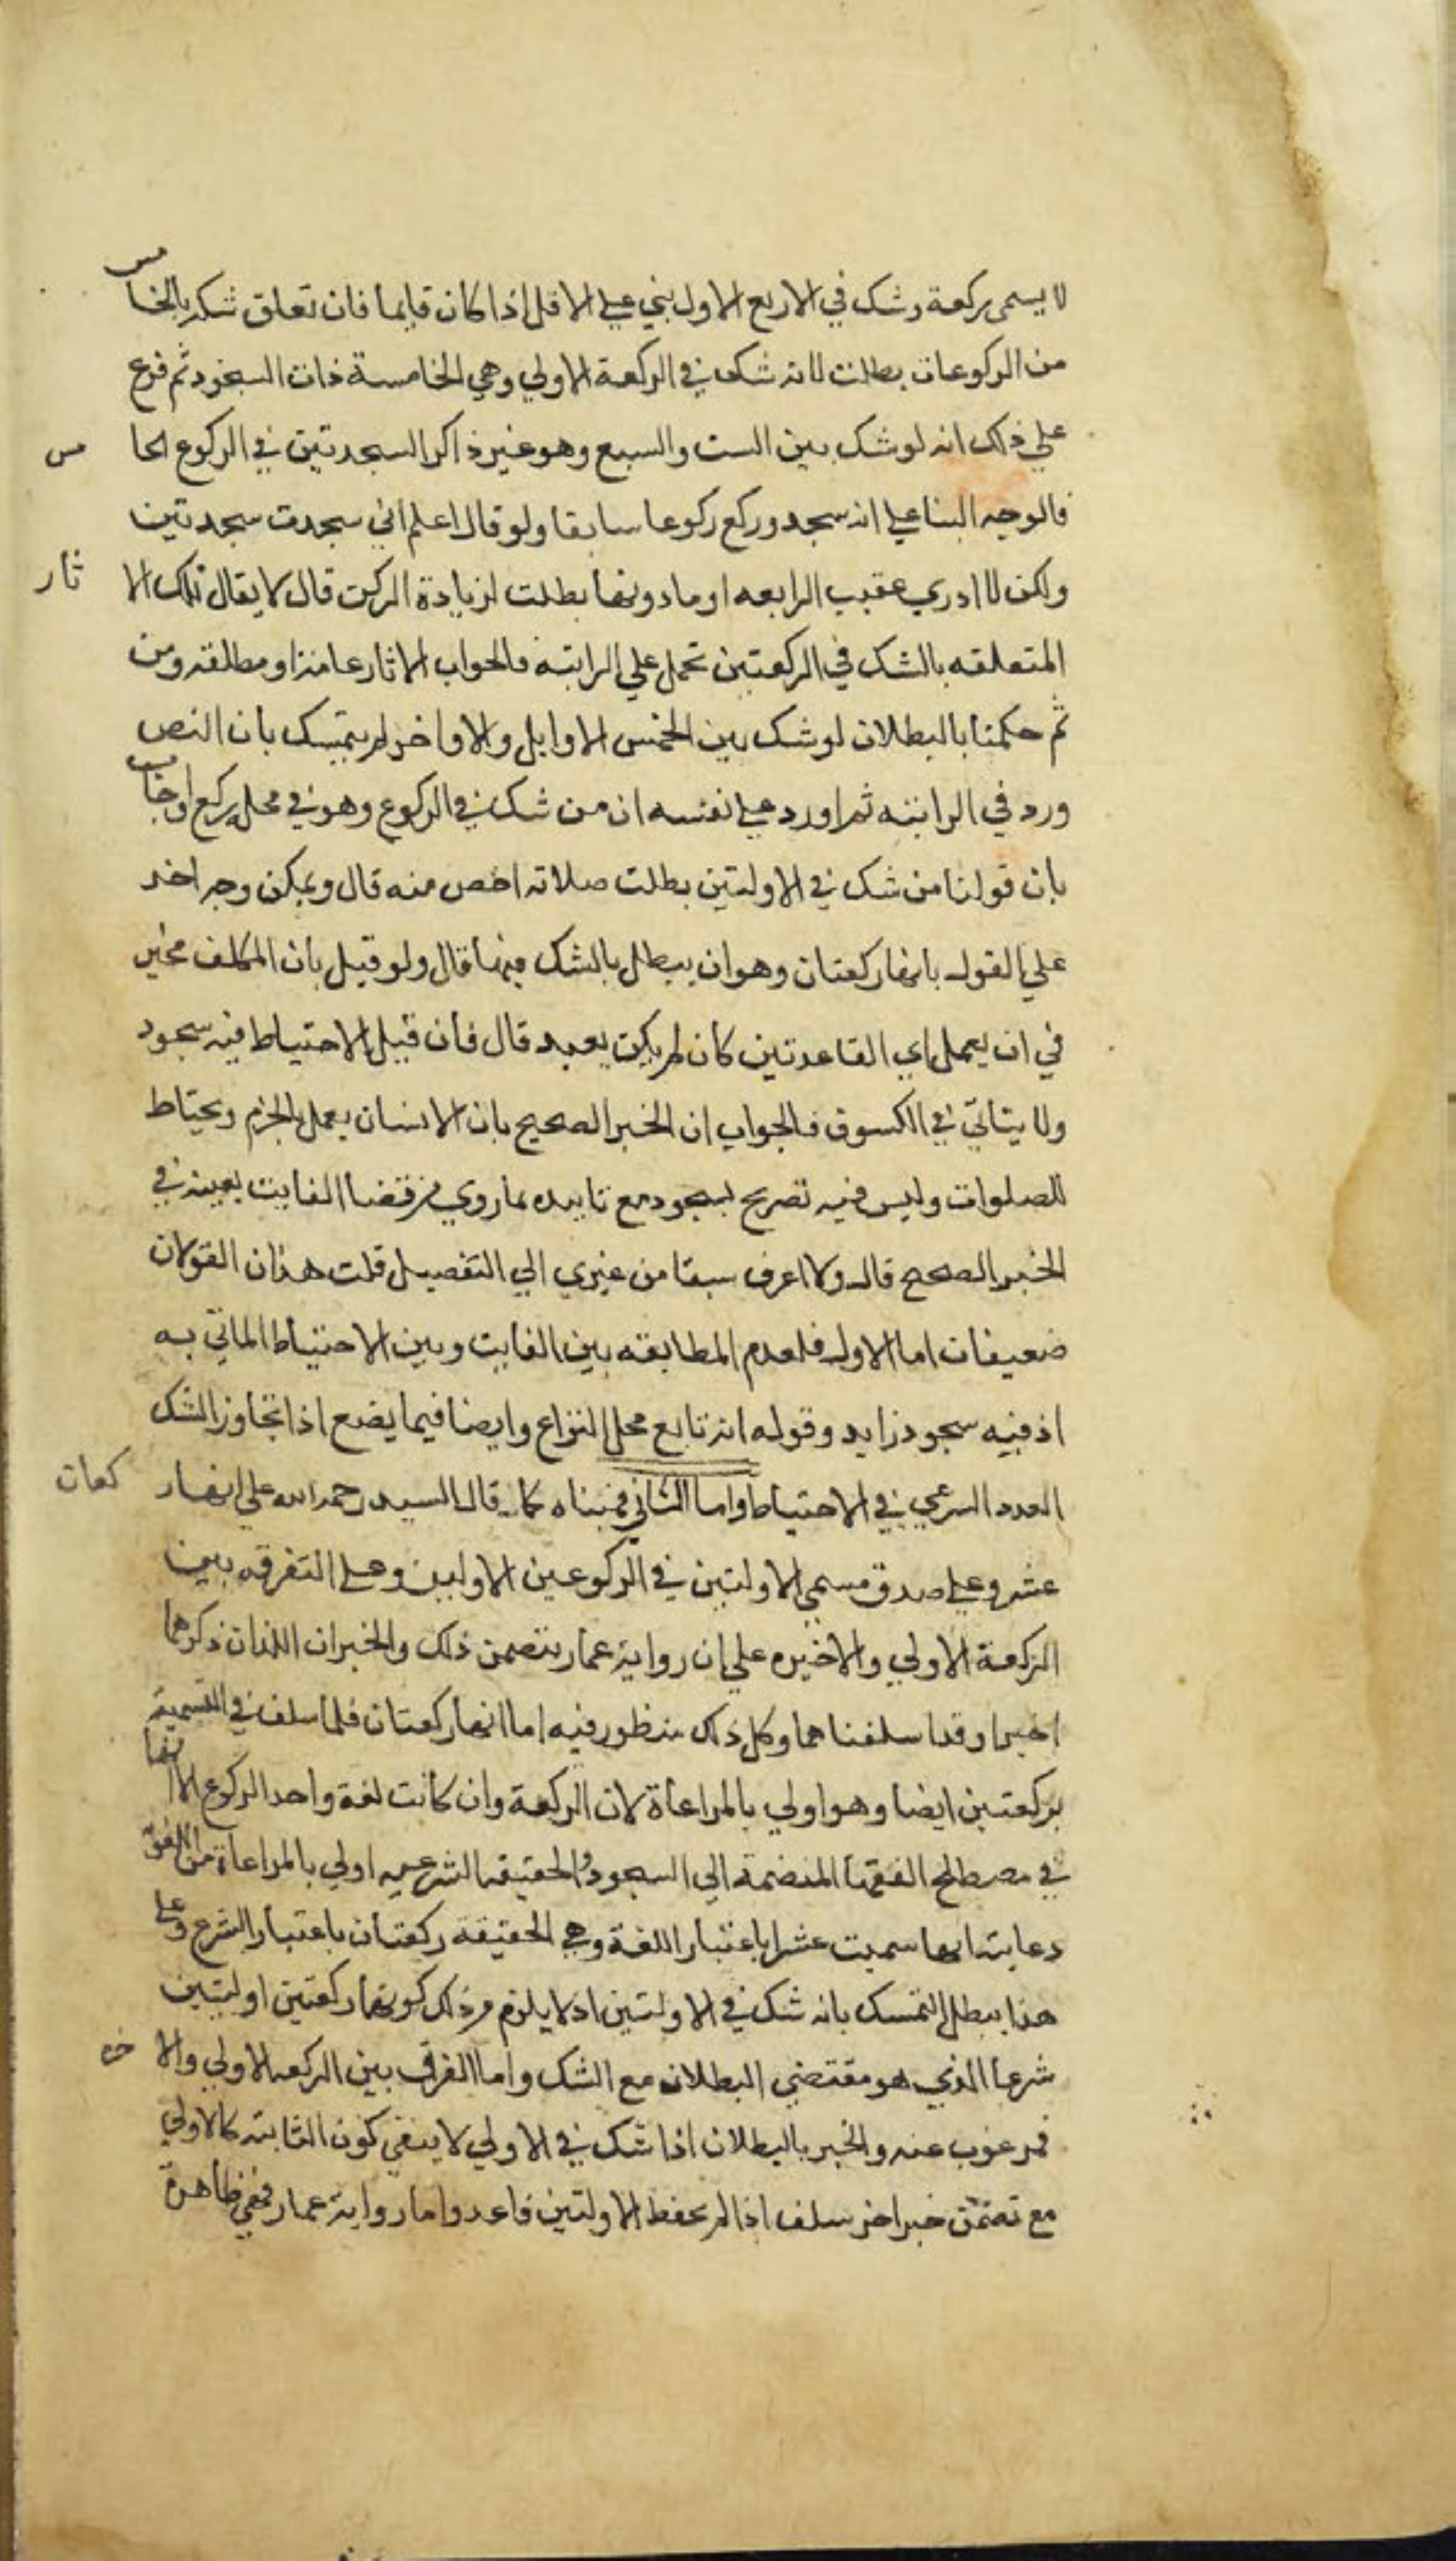 لا يسمى ركعة وشك في الاربع الاول بني علي الاقل اذا كان قايما فان تعلق شكه بالخامس
من الركوعات بطلت لانه شك في الركعة الاولي وهي الخامسة ذات السجود ثم فرع
علي ذلك انه لو شك بين الست والسبع وهو غير ذاكر السجدتين في الركوع الخا مس
فالوجه البنا علي انه سجد وركع ركوعا سابقا ولو قال اعلم اني سجدت سجدتين
ولكن لا ادري عقيب الرابعه او ما دونها بطلت لزيادة الركن قال لا يقال تلك الا ثار
المتعلقه بالشك في الركعتين تحمل علي الراتبه فالجواب الاثار عامة او مطلقه ومن
ثم حكمنا بالبطلان لو شك بين الخمس الاوايل والاواخر لم يتمسك بان النص
ورد في الراتبه ثم اورد علي نفسه ان من شك في الركوع وهو في محله يركع اوجاب
بان قولنا من شك في الاولتين بطلت صلاته اخص منه قال ويمكن وجه اخر
علي القول بانها ركعتان وهو ان يبطل بالشك فيها قال ولو قيل بان المكلف مخير
في ان يعمل اي القاعدتين كان لم يكن بعيد قال فان قيل الاحتياط فيه سجود
ولا يتاتي في الكسوف فالجواب ان الخبر الصحيح بان الانسان يعمل بالجزم ويحتاط
للصلوات وليس فيه تصريح بسجود مع تاييده بما روي من قضا الفايت بعينه في
الخبر الصحيح قال ولا اعرف سبقا من غيري الي التفصيل قلت هذان القولان
ضعيفان اما الاول فلعدم المطابقه بين الفايت وبين الاحتياط الماتي به
اذ فيه سجود زايد وقوله انه تابع محل النزاع وايضا فيما يصنع اذا تجاوز الشك
العدد الشرعي في الاحتياط واما الثاني فمبناه كما قال السيد رحمه الله علي انها ر كعات
عشر وعلي صدق مسمي الاولتين في الركوعين الاوليين وعلي التفرقه بين
الركعة الاولي والاخيره علي ان رواية عمار تتضمن ذلك والخبران اللذان ذكرهما
اخيرا وقد اسلفناهما وكل ذلك منظور فيه اما انها ركعتان فلما سلف في التسمية
بركعتين ايضا وهو اولي بالمراعاة لان الركعة وان كانت لغة واحد الركوع الا انها
في مصطلح الفقها المنضمة الي السجود والحقيقه الشرعيه اولي بالمراعاة من اللغوية
وغايته انها سميت عشرا باعتبار اللغة وهي الحقيقة ركعتان باعتبار الشرع وعلي
هذا يبطل التمسك بانه شك في الاولتين اذ لا يلزم من ذلك كونها ركعتين اولتين
شرعا الذي هو مقتضي البطلان مع الشك واما الفرق بين الركعه الاولي والا خره
فمرغوب عنه والخبر بالبطلان اذا شك في الاولي لا ينفي كون الثانيه كالاولي
مع تضمن خبر اخر سلف اذا لم يحفظ الاولتين فاعد واما رواية عمار ففي ظاهره